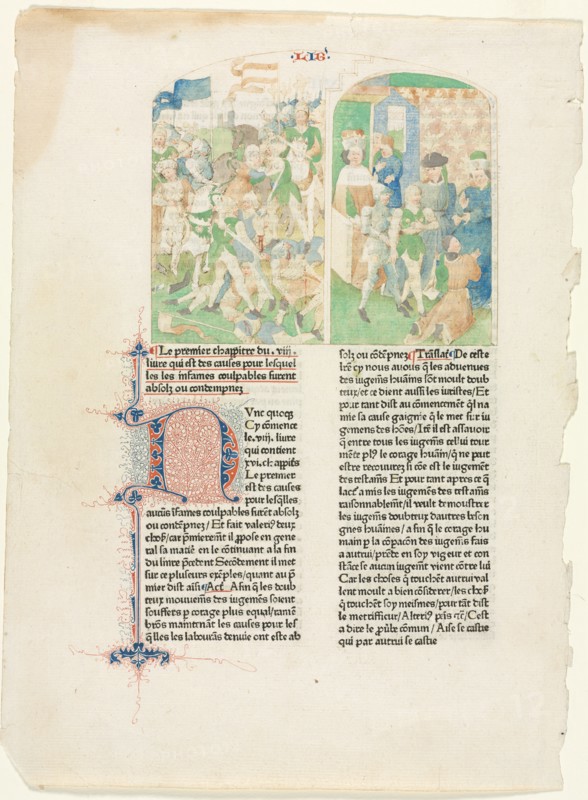 LIB
Le premier chappitre du . viii .
liure qui est des causes pour lesquel
les les infames coulpables furent
absolz ou contempnez
Nunc quoqz
Cy cōmence
le .viii. liure
qui contient
xvi. chappitres
Le premier
est des causes
pour lesqlles
aucūs ifames coulpables furēt absolz
ou condēpnez / Et fait valeri9 deux
choses / car pmieremēt il ppose en gene
ral sa matiē en le cōtinuant a la fin
du liure pcedent Secōdement il met
sur ce pluseurs exēples / quant au p
mier dist aīsi Act Afin q les doub
teux mouuemēs des iugemēs soient
souffers p corage plus equal / ramē
brōs maintenāt les causes pour les
qlles les labourās denuie ont este ab
solz ou cōdēpnez Translat De ceste
lrē cy nous auons que les aduenues
des iugemēs huāins sōt moult doub
teux / et ce dient aussi les iuristes / Et
pour tant dist au cōmencement ql na
mie sa cause gaignie q le met sur iu
gemens des hōes / Itē il est assauoir
q entre tous les iugemēs celui tour
mēte pl9 le corage huāin / q ne puet
estre recouurez si cōe est le iugement
des testamēs Et pour tant apres ce q
lact9 a mis les iugemēs des testamēs
raisonnablemēt / il veult demoustrer
les iugemēs doubteux dautres beson
gnes huāines / a fin q le corage hu
main p la cōpacōn des iugemēs fais
a autrui / prēde en soy vigeur et con
stāce se aucun iugemēt vient cōtre lui
Car les choses q touchēt autrui val
lent moult a bien cōsiderer / les choses
q touchēt soy meismes / pour tāt dist
le metrifieur / Alteri9 pris etc / Cest
a dire le puble cōmun / Aise se castie
qui par autrui se castie